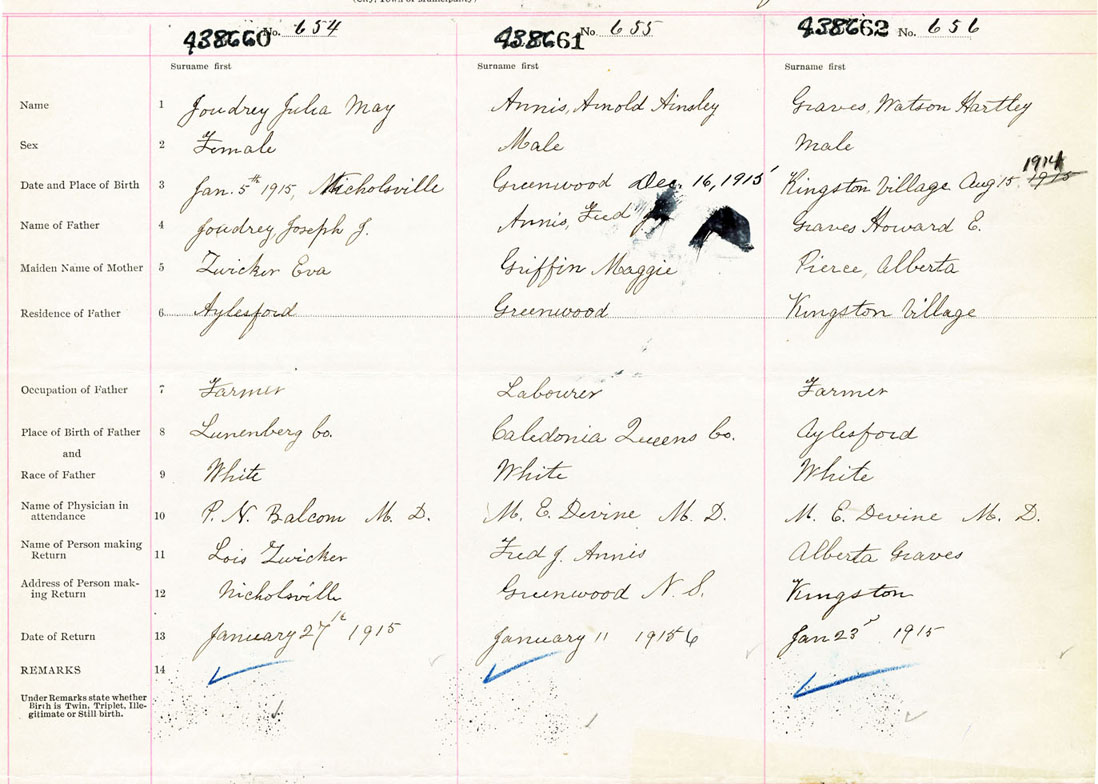 438660 No. 654 438661 No. 655 438662 No. 656
Surname first Surname first Surname first
Name 1 Joudrey Julia May Annis, Arnold Ainsley Graves, Watson Hartley
Sex 2 Female Male Male
1914
Date and Place of Birth 3 Jan. 5th 1915, Nicholsville Greenwood Dec. 16, 1915 Kingston Village Aug 15 1915
Name of Father 4 Joudrey Joseph J. Annis, Fred J. Graves Howard E.
Maiden Name of Mother 5 Zwicker Eva Griffin Maggie Pierce, Alberta
Residence of Father 6 Aylesford Greenwood Kingston Village
Occupation of Father 7 Farmer Labourer Farmer
Place of Birth of Father 8 Lunenberg Co. Caledonia Queens Co. Aylesford
and
Race of Father 9 White White White
Name of Physician in
attendance 10 P. N. Balcom M. D. M. E. Devine M. D. M. E. Devine M. D.
Name of Person making
Return 11 Lois Zwicker Fred J. Annis Alberta Graves
Address of Person mak-
ing Return 12 Nicholsville Greenwood N. S. Kingston
Date of Return 13 January 27th 1915 January 11 1915 6 Jan 23rd 1915
REMARKS 14
Under Remarks state whether
Birth is Twin, Triplet, Ille-
gitimate or Still birth.